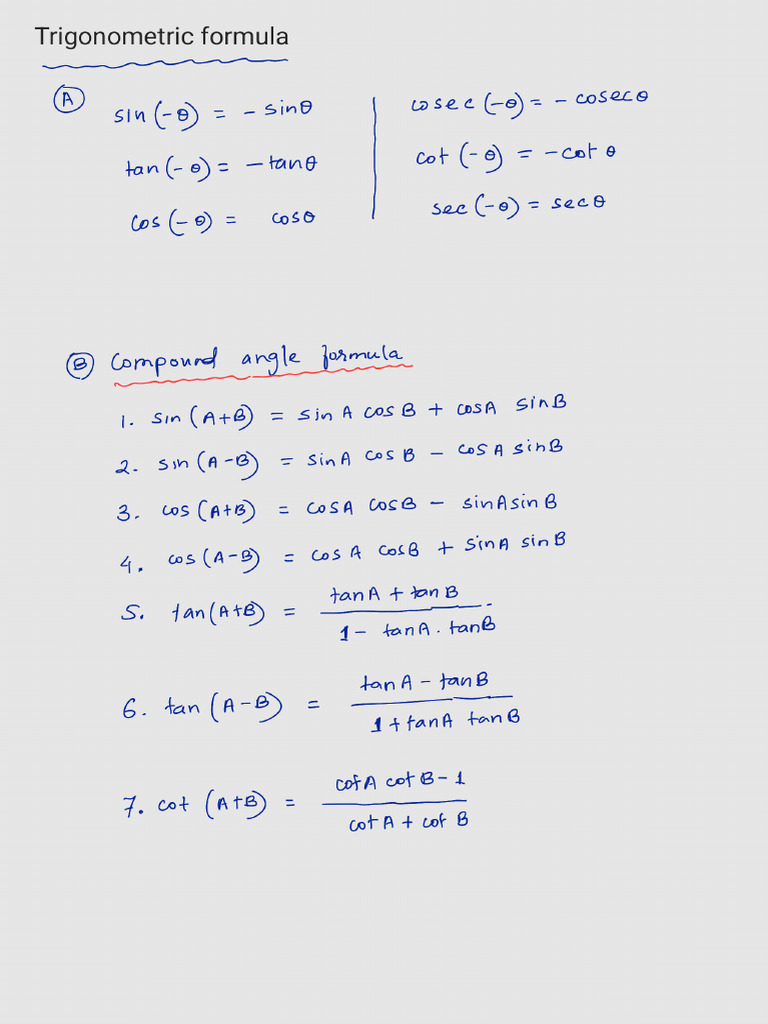 Trigonometric formula
(A)
sin(-θ) = - sinθ
tan(-θ) = -tanθ
cos(-θ) = cosθ
cosec(-θ) = - cosecθ
cot(-θ) = -cot θ
sec(-θ) = secθ
(B) Compound angle formula
1. sin(A+B) = sin A cos B + cosA sinB
2. sin(A-B) = sinA cosB - cosA sinB
3. cos(A+B) = cosA cosB - sinA sinB
4. cos(A-B) = cosA cosB + sinA sinB
5. tan(A+B) = tanA + tanB
1 - tanA . tanB
6. tan(A-B) = tanA - tanB
1 + tanA tanB
7. cot (A+B) = cotA cotB - 1
cotA + cotB